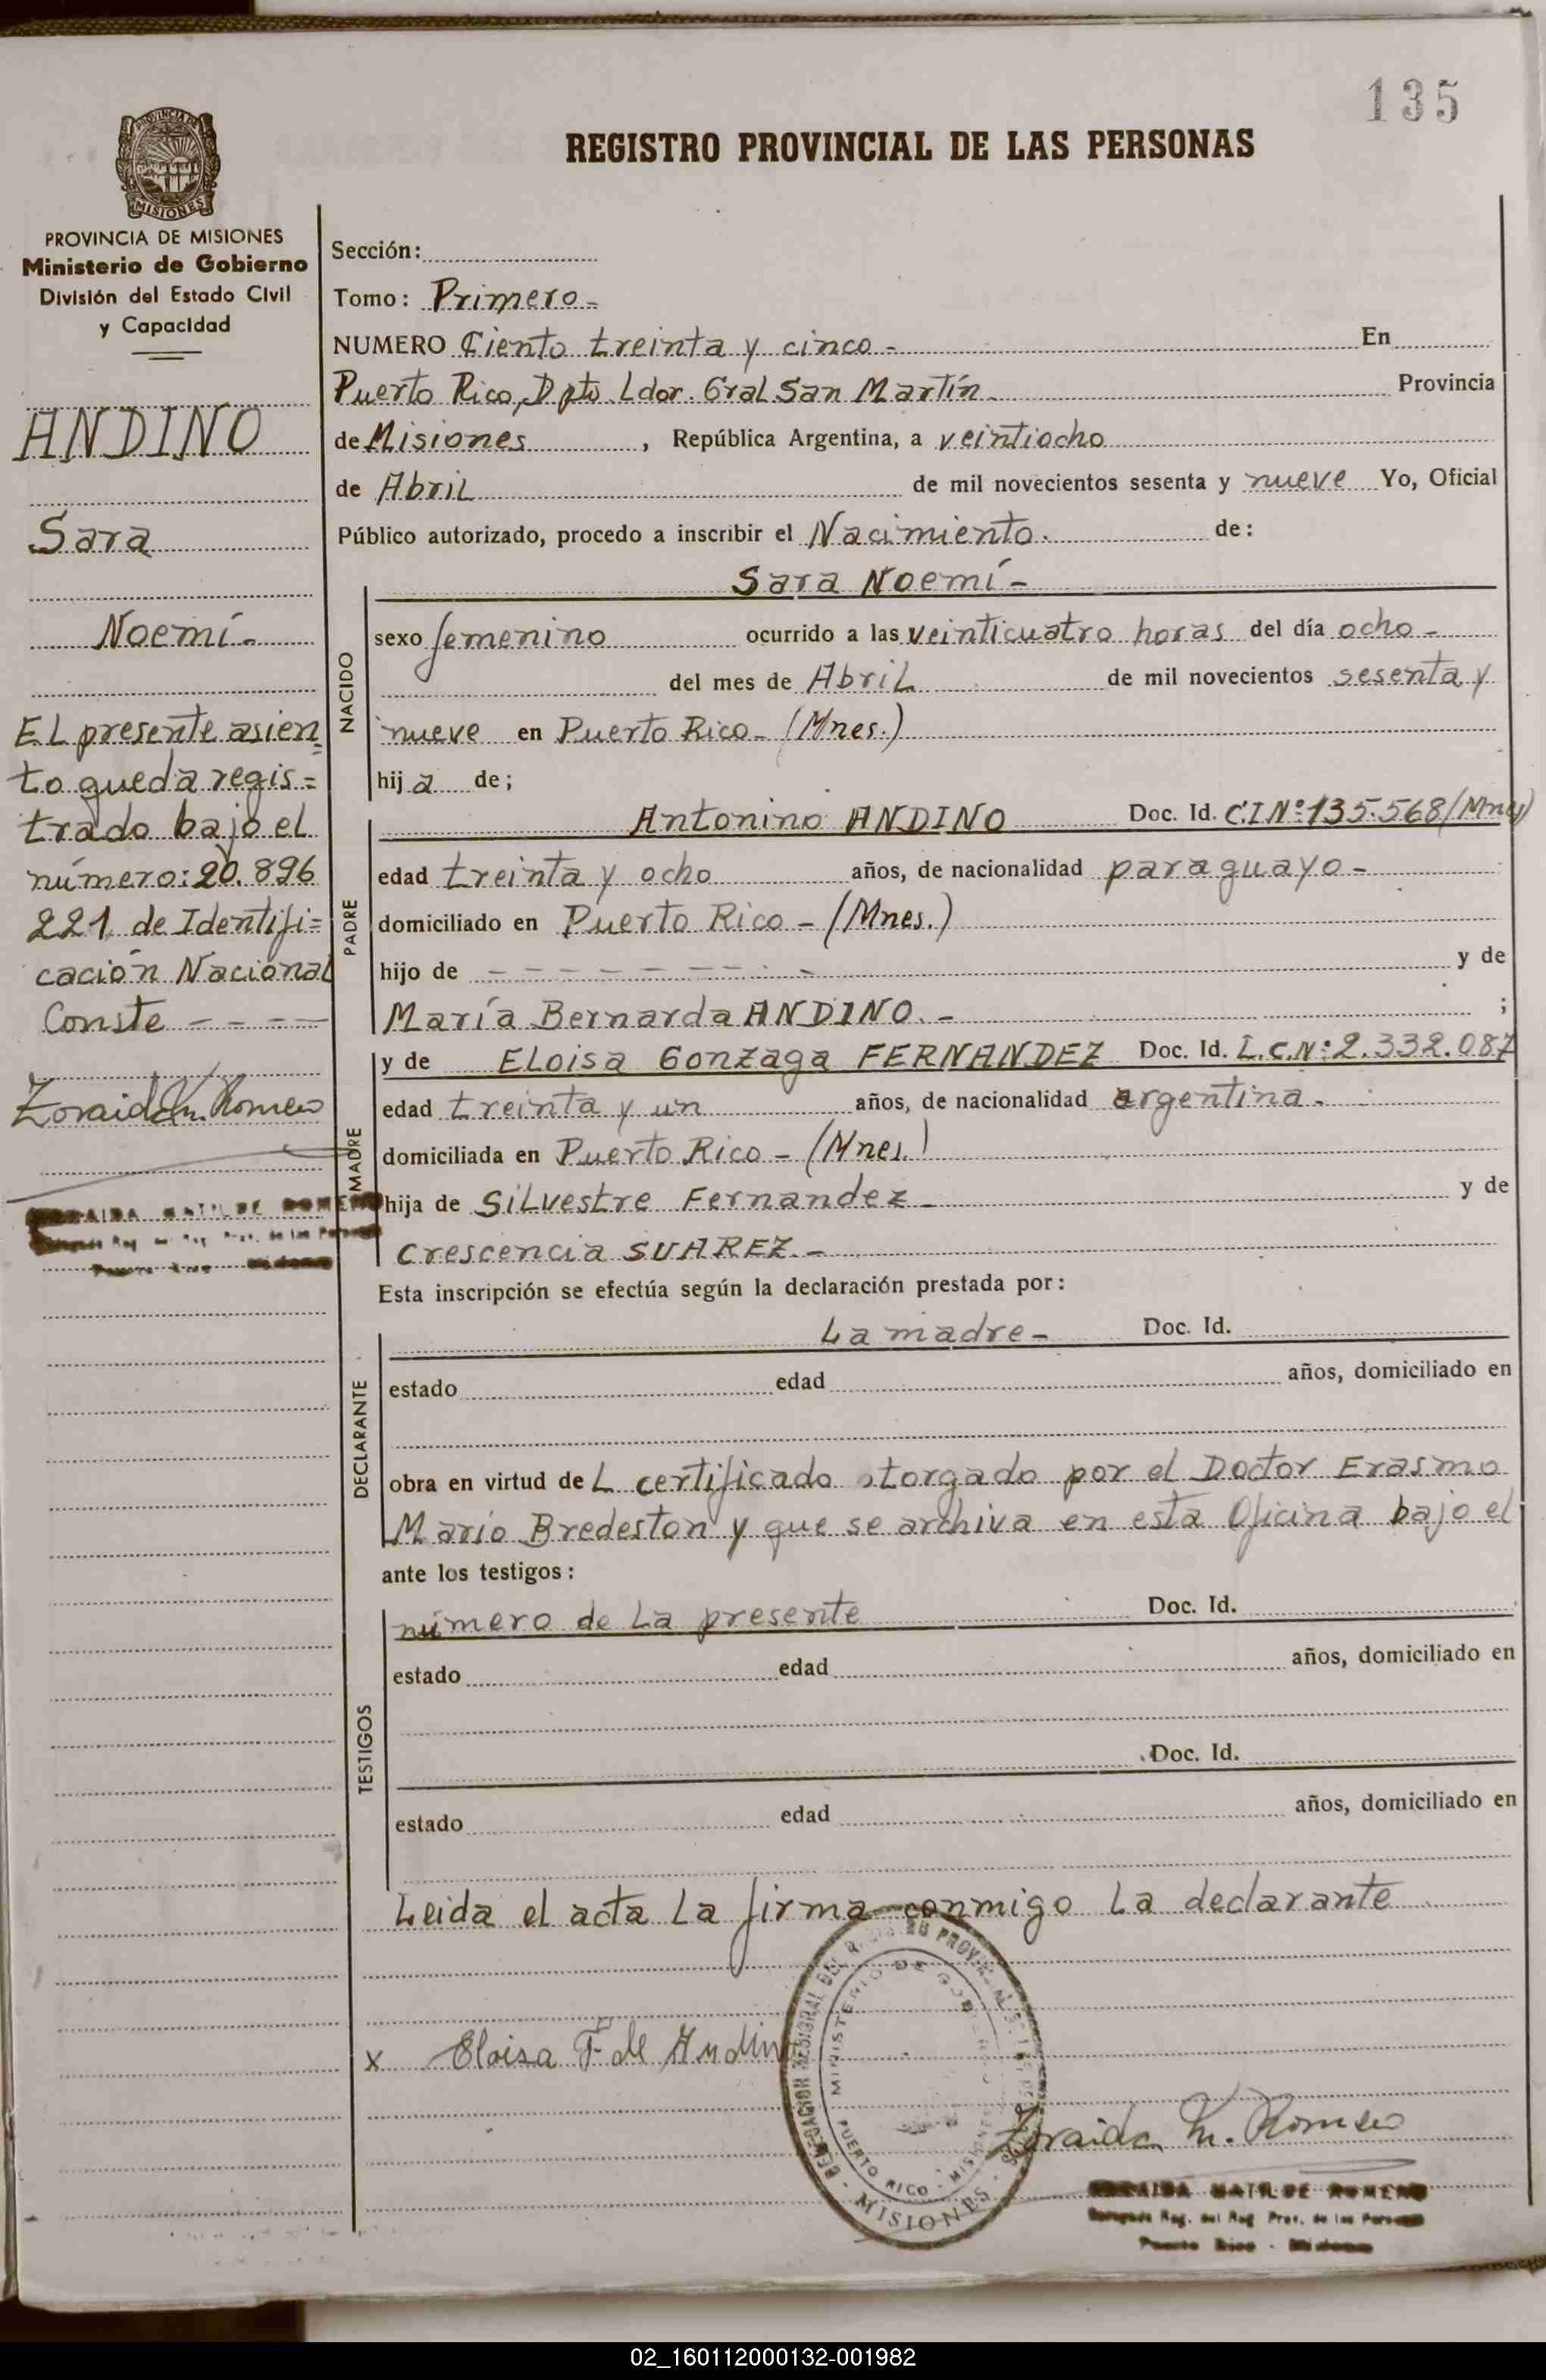 135
PROVINCIA DE
MISIONES
REGISTRO PROVINCIAL DE LAS PERSONAS
PROVINCIA DE MISIONES
Ministerio de Gobierno
División del Estado Civil
y Capacidad
ANDINO
Sara
Noemí.
EL presente asien
to queda regis=
trado bajo el
número: 20.896
221 de Identifi=
cación Nacional
Conste - - - -
Zoraida M. Romero
ZORAIDA MATILDE ROMERO
Sección:
Tomo: Primero-
NUMERO Ciento treinta y cinco - En
Puerto Rico, Dpto. Ldor. Gral San Martín - Provincia
de Misiones , República Argentina, a veintiocho
de Abril de mil novecientos sesenta y nueve Yo, Oficial
Público autorizado, procedo a inscribir el Nacimiento. de:
Sara Noemí -
NACIDO
sexo femenino ocurrido a las veinticuatro horas del día ocho -
del mes de Abril de mil novecientos sesenta y
nueve en Puerto Rico - (Mnes.)
hij a de;
PADRE
Antonino ANDINO Doc. Id. C.I Nº 135.568/Mnes)
edad treinta y ocho años, de nacionalidad paraguayo -
domiciliado en Puerto Rico - (Mnes.)
hijo de - - - - - - - - - y de
María Bernarda ANDINO. - ;
MADRE
y de ELOisa Gonzaga FERNANDEZ Doc. Id. L.C.Nº 2.332.087
edad treinta y un años, de nacionalidad argentina.
domiciliada en Puerto Rico - (Mnes.)
hija de SiLvestre Fernandez - y de
Crescencia SUAREZ. -
Esta inscripción se efectúa según la declaración prestada por:
DECLARANTE
La madre - Doc. Id.
estado edad años, domiciliado en
obra en virtud de L certificado otorgado por el Doctor Erasmo
Mario Bredeston y que se archiva en esta Oficina bajo el
ante los testigos:
TESTIGOS
número de La presente Doc. Id.
estado edad años, domiciliado en
Doc. Id.
estado edad años, domiciliado en
Leida el acta La firma conmigo La declarante
x Eloisa F. de Andino
DELEGACION REGIONAL DEL REGISTRO PROVINCIAL DE LAS PERSONAS - MISIONES -
MINISTERIO DE GOBIERNO
PUERTO RICO - MISIONES
Zoraida M. Romero
ZORAIDA MATILDE ROMERO
Delegada Reg. del Reg Prov. de las Personas
Puerto Rico - Misiones
02_160112000132-001982